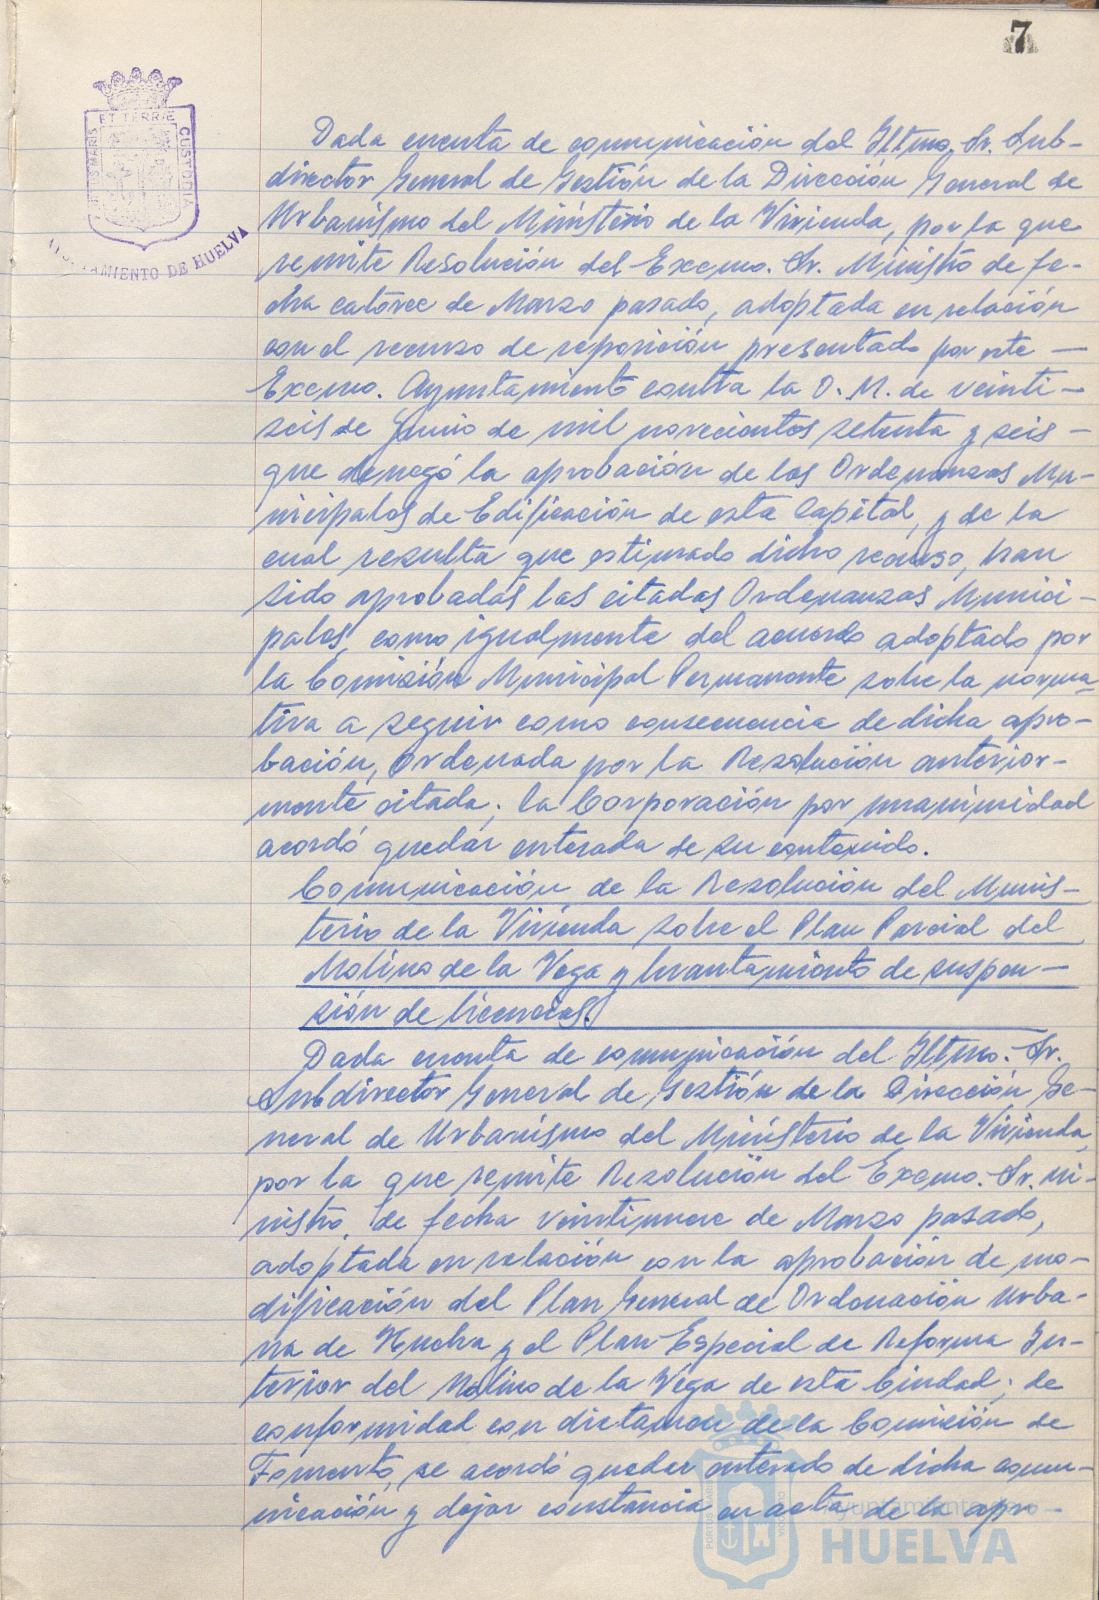 7
ET TERRÆ
PORTUS MARIS
CUSTODIA
AYUNTAMIENTO DE HUELVA
Dada cuenta de comunicación del Iltmo. Sr. Sub-
director General de Gestión de la Dirección General de
Urbanismo del Ministerio de la Vivienda, por la que
remite Resolución del Excmo. Sr. Ministro de fe-
cha catorce de Marzo pasado, adoptada en relación
con el recurso de reposición presentado por este —
Excmo. Ayuntamiento contra la O.M. de veinti-
seis de Junio de mil novecientos setenta y seis -
que denegó la aprobación de las Ordenanzas Mu-
nicipales de Edificación de esta Capital, y de la
cual resulta que estimado dicho recurso, han
sido aprobadas las citadas Ordenanzas Munici-
pales, como igualmente del acuerdo adoptado por
la Comisión Municipal Permanente sobre la norma-
tiva a seguir como consecuencia de dicha apro-
bación, ordenada por la Resolución anterior-
mente citada; la Corporación por unanimidad
acordó quedar enterada de su contenido.
Comunicación de la Resolución del Minis-
terio de la Vivienda sobre el Plan Parcial del
Molino de la Vega y levantamiento de suspen-
sión de licencias.
Dada cuenta de comunicación del Iltmo. Sr.
Subdirector General de Gestión de la Dirección Ge-
neral de Urbanismo del Ministerio de la Vivienda,
por la que remite Resolución del Excmo. Sr. Mi-
nistro, de fecha veintinueve de Marzo pasado,
adoptada en relación con la aprobación de mo-
dificación del Plan General de Ordenación Urba-
na de Huelva y el Plan Especial de Reforma In-
terior del Molino de la Vega de esta Ciudad; de
conformidad con dictamen de la Comisión de
Fomento, se acordó quedar enterado de dicha comu-
nicación y dejar constancia en acta de la apro-
Ayuntamiento de
HUELVA